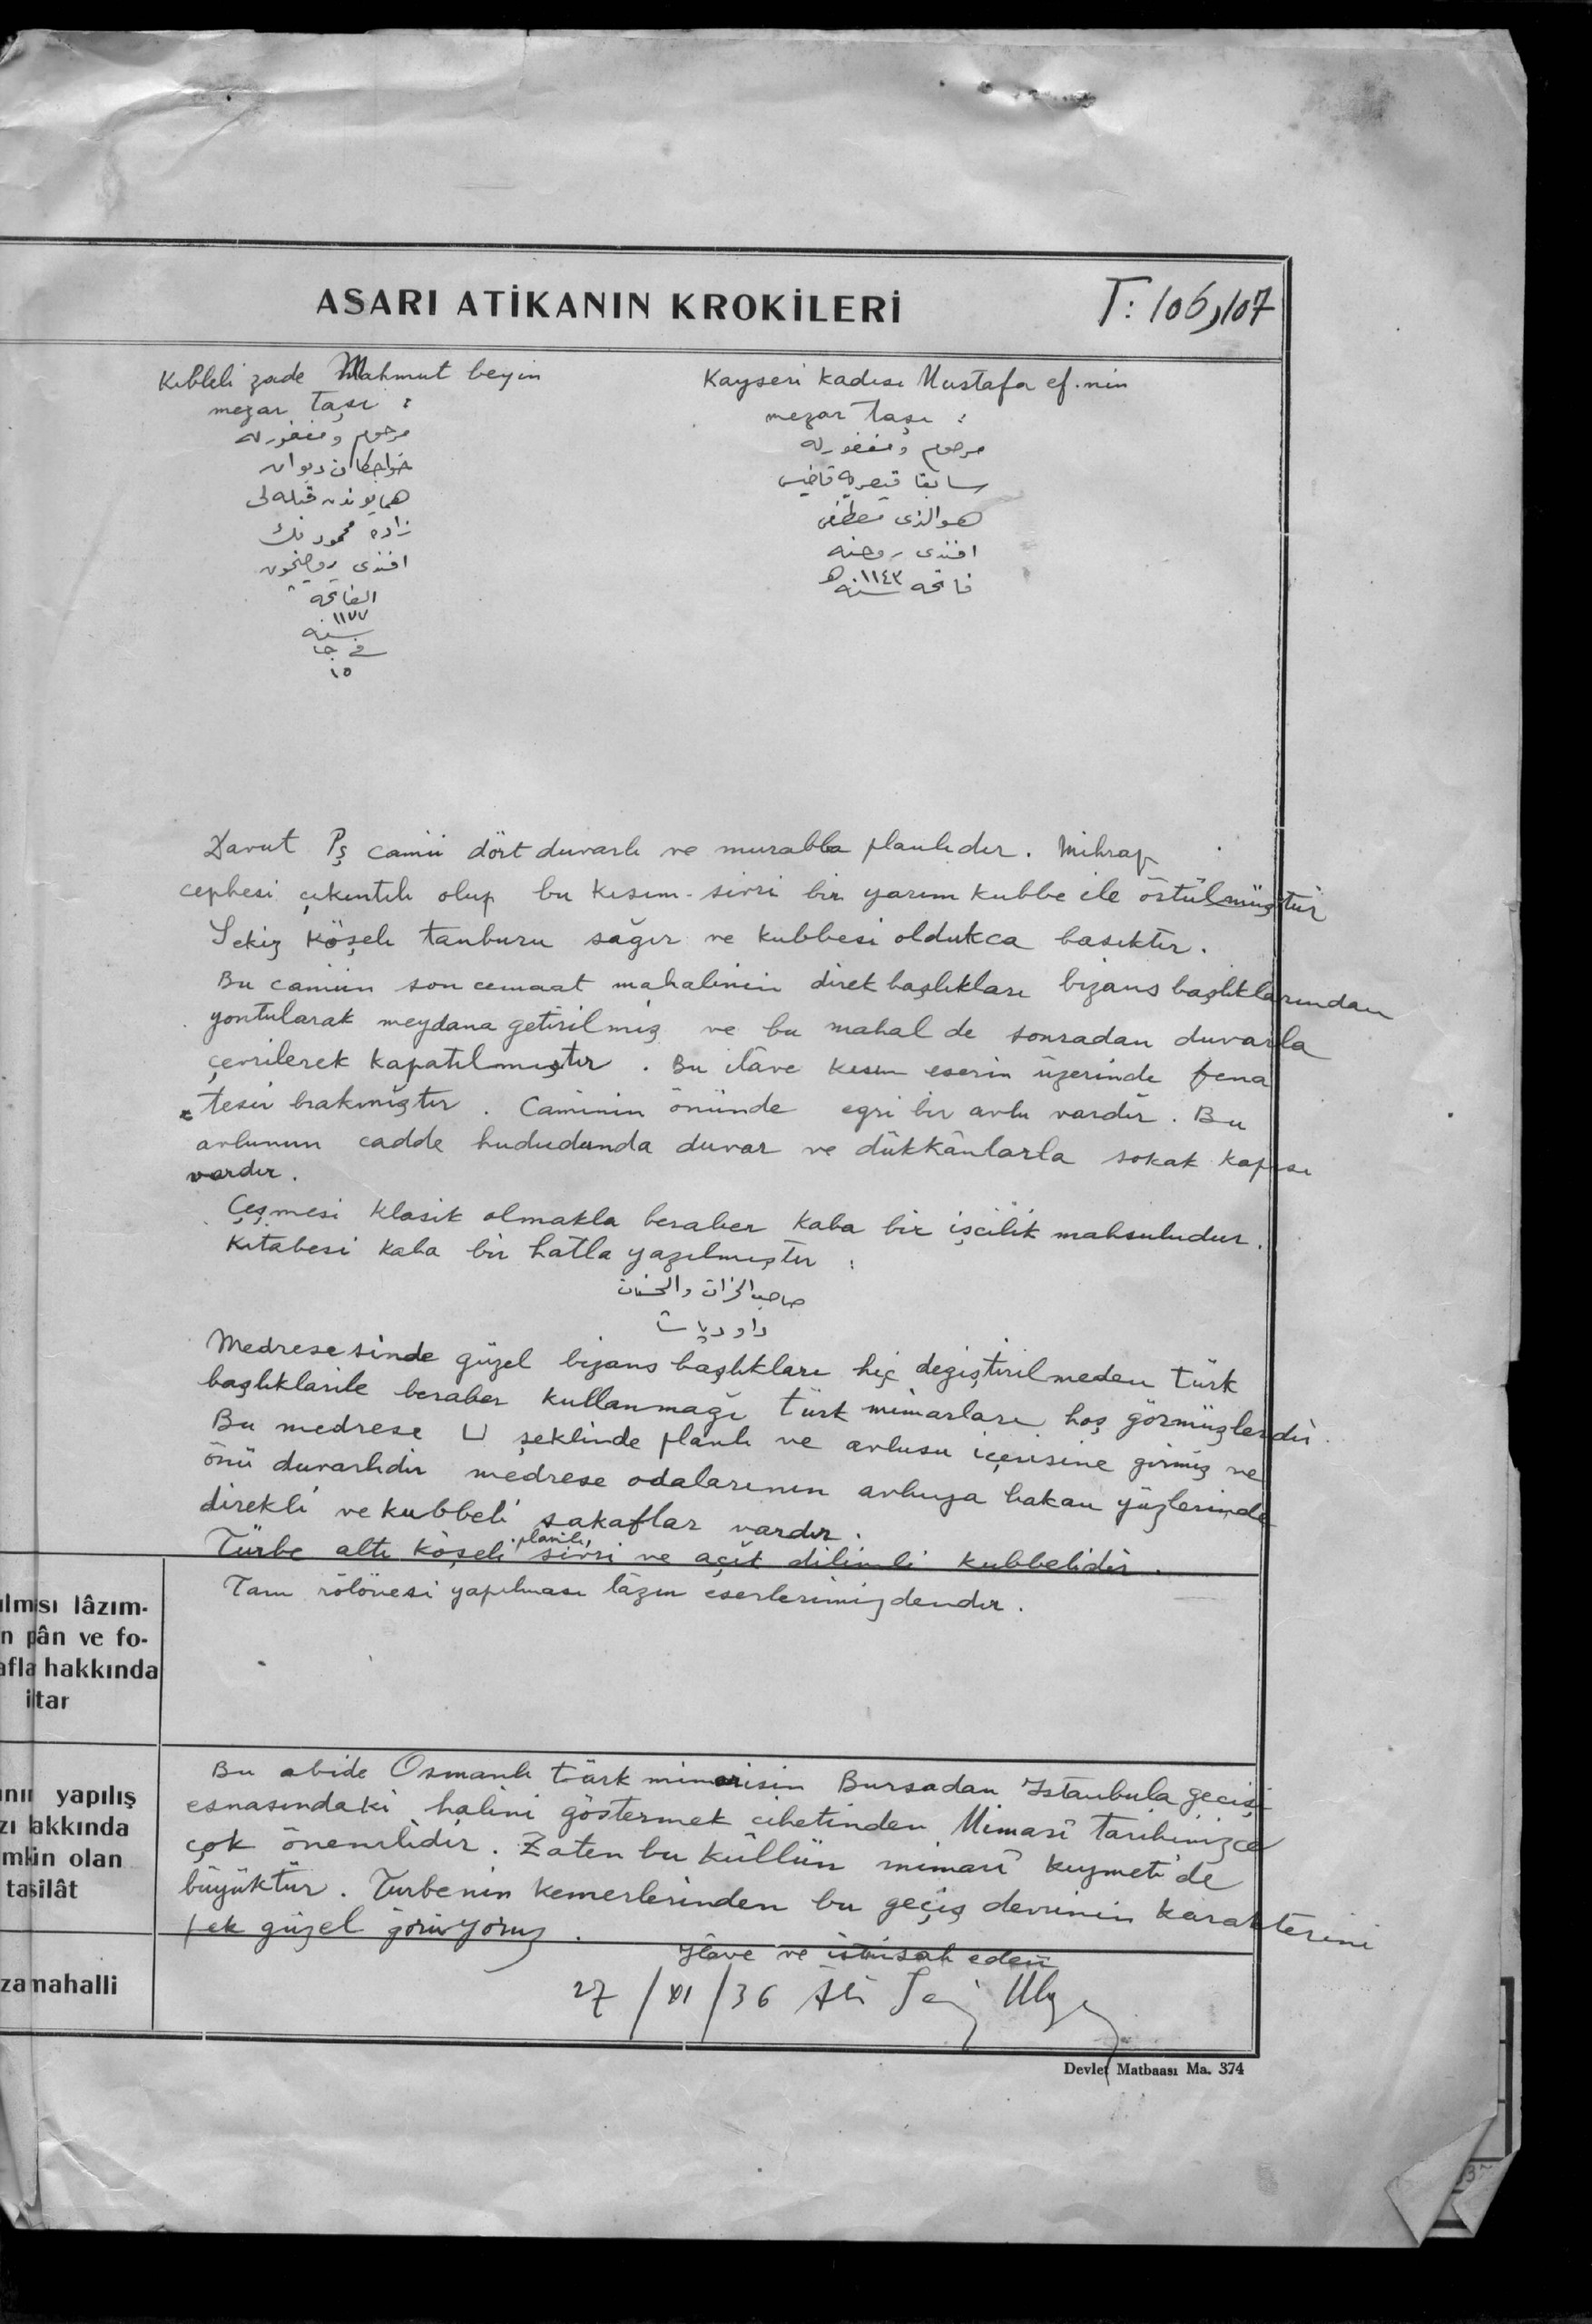 ASARI ATİKANIN KROKİLERİ
T: 106,107
Kıbleli zade Mahmut beyin
mezar taşı :
مرحوم و مغفور له
خواجكان ديوان
همايوندن قبله لى
زاده محمود بك
افندى روحيچون
الفاتحه
١١٧٧
سنه
فى جا
١٥
Kayseri kadısı Mustafa ef.nin
mezar taşı :
مرحوم و مغفور له
سابقا قيصريه قاضيسى
مصطفى
افندى روحنه
فاتحه سنه ١١٤٣
Davut Pş camii dört duvarlı ve murabba planlıdır. Mihrap
cephesi çıkıntılı olup bu kısım sivri bir yarım kubbe ile örtülmüştür
Sekiz köşeli tanburu sağır ve kubbesi oldukca basıktır.
Bu camiin son cemaat mahalinin direk başlıkları bizans başlıklarından
yontularak meydana getirilmiş ve bu mahal de sonradan duvarla
çevrilerek kapatılmıştır. Bu ilâve kısım eserin üzerinde fena
tesir brakmıştır. Camiinin önünde egri bir avlu vardır. Bu
avlunun cadde hududunda duvar ve dükkânlarla sokak kapısı
vardır.
Çeşmesi klasik olmakla beraber kaba bir işcilik mahsuludur.
Kitabesi kaba bir hatla yazılmıştır :
صاحب الخيرات والحسنات
داود پاشا
Medresesinde güzel bizans başlıkları hiç degiştirilmeden türk
başlıklarile beraber kullanmağı türk mimarları hoş görmüşlerdir.
Bu medrese ⊔ şeklinde planlı ve avlusu içerisine girmiş ve
önü duvarlıdır medrese odalarının avluya bakan yüzlerinde
direkli ve kubbeli sakaflar vardır.
Türbe altı köşeli planlı, sivri ve açıt dilimli kubbelidir.
Tam rölövesi yapılması lâzım eserlerimizdendir.
ılmsı lâzım-
n pân ve fo-
afla hakkında
itar
Bu abide Osmanlı türk mimarisin Bursadan Istanbula geçişi
esnasındaki halini göstermek cihetinden Mimarî tarihimizce
çok önemlidir. Zaten bu küllün mimarî kıymeti de
büyüktür. Türbenin kemerlerinden bu geçiş devrinin karakterini
pek güzel görüyoruz.
ınıı yapılış
zı hakkında
mkin olan
tasilât
İlave ve istinsah eden
27/XI/36 Ali
zamahalli
Devlet Matbaası Ma. 374